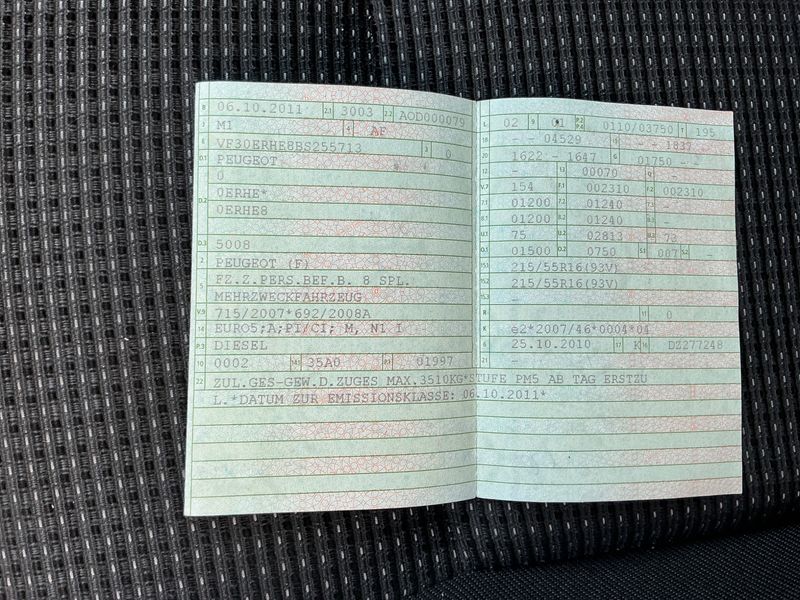 B 06.10.2011 2.1 3003 2.2 AOD000079
J M1 4 AF
E VF30ERHE8BS255713 3 0
D.1 PEUGEOT
0
D.2 0ERHE*
0ERHE8
D.3 5008
2 PEUGEOT (F)
5 FZ.Z.PERS.BEF.B. 8 SPL.
MEHRZWECKFAHRZEUG
V.9 715/2007*692/2008A
14 EURO5;A;PI/CI; M, N1 I
P.3 DIESEL
10 0002 14.1 35A0 P.1 01997
22 ZUL.GES-GEW.D.ZUGES MAX.3510KG*STUFE PM5 AB TAG ERSTZU
L.*DATUM ZUR EMISSIONSKLASSE: 06.10.2011*
L 02 9 01 P.2 P.4 0110/03750 T 195
18 - - 04529 19 - - 1837
20 1622 - 1647 G 01750 - -
12 - 13 00070 Q -
V.7 154 F.1 002310 F.2 002310
7.1 01200 7.2 01240 7.3 -
8.1 01200 8.2 01240 8.3 -
U.1 75 U.2 02813 U.3 73
O.1 01500 O.2 0750 S.1 007 S.2 -
15.1 215/55R16(93V)
15.2 215/55R16(93V)
15.3 -
R - 11 0
K e2*2007/46*0004*04
6 25.10.2010 17 K 16 DZ277248
21 -